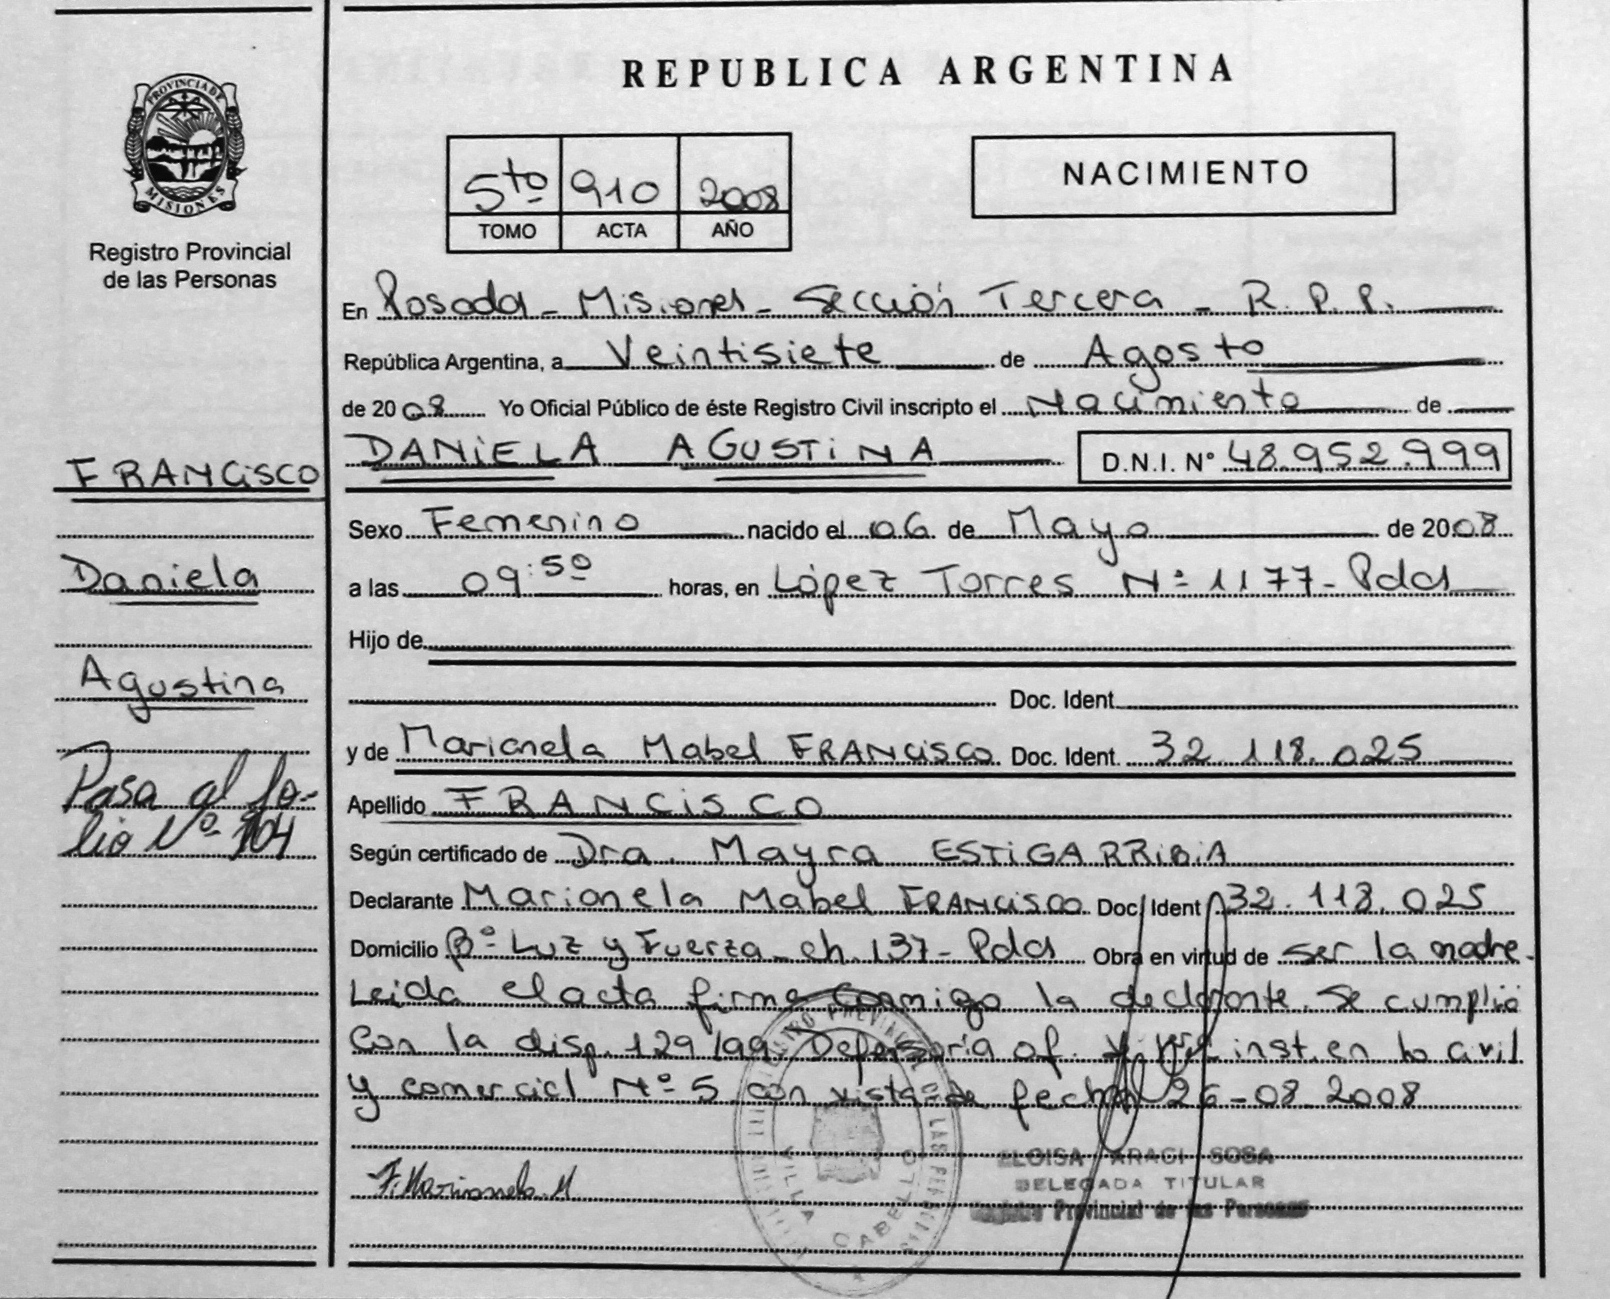 REPUBLICA ARGENTINA
PROVINCIA DE
MISIONES
Registro Provincial
de las Personas
5to 910 2008
TOMO ACTA AÑO
NACIMIENTO
En Posadas - Misiones - Sección Tercera - R.P.P.
República Argentina, a Veintisiete de Agosto
de 2008 Yo Oficial Público de éste Registro Civil inscripto el Nacimiento de
DANIELA AGUSTINA D.N.I. N° 48.952.999
FRANCISCO
Daniela
Agustina
Pasa al fo-
lio Nº 104
Sexo Femenino nacido el 06 de Mayo de 2008
a las 09:50 horas, en López Torres Nº 1177 - Pdas
Hijo de
Doc. Ident.
y de Marianela Mabel FRANCISCO Doc. Ident. 32.118.025
Apellido FRANCISCO
Según certificado de Dra. Mayra ESTIGARRIBIA
Declarante Marianela Mabel FRANCISCO Doc. Ident 32.118.025
Domicilio Bº Luz y Fuerza - ch. 137 - Pdas Obra en virtud de ser la madre -
Leida el acta firma conmigo la declarante. Se cumplió
con la disp. 129/99. Defensoría of. inst. en lo civil
y comercial Nº 5 con vista de fecha 26-08-2008
F. Marianela M
VILLA CABELLO
ELOISA ARACI SOSA
DELEGADA TITULAR
Registro Provincial de las Personas